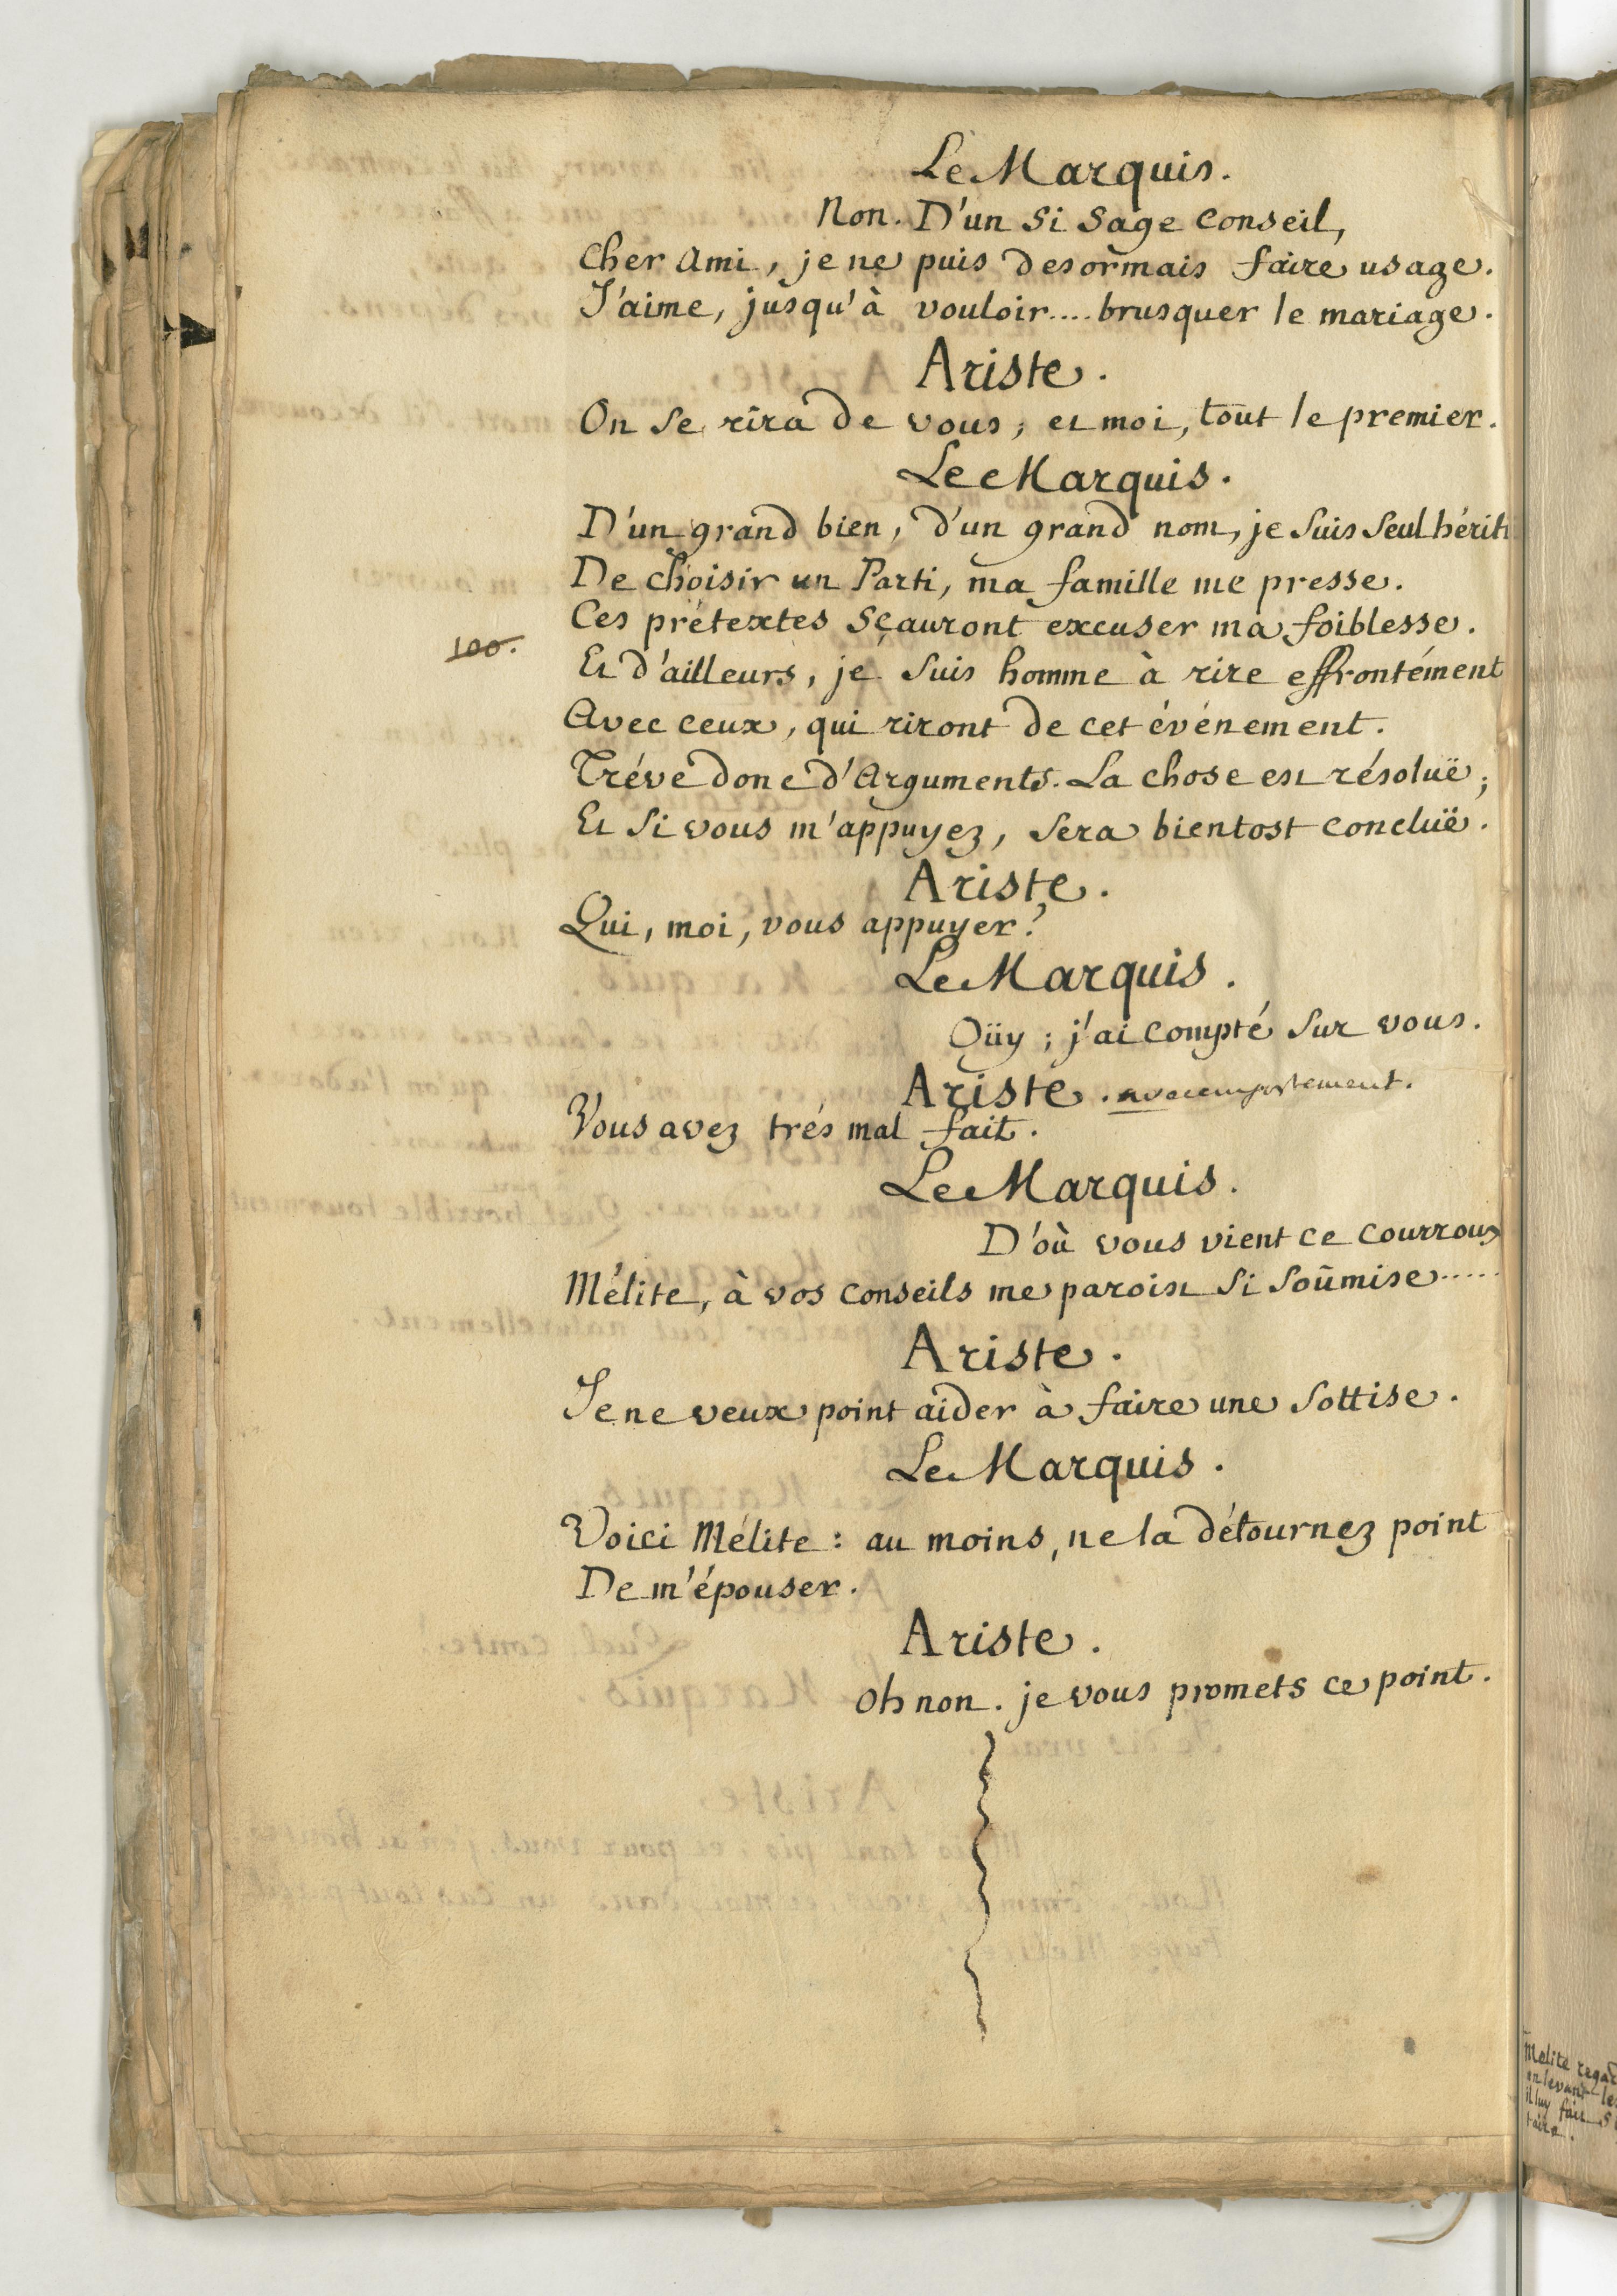 Le Marquis.
Non. D'un si sage conseil,
Cher Ami, je ne puis desormais faire usage.
J'aime, jusqu'à vouloir.... brusquer le mariage.
Ariste.
On se rira de vous; et moi, tout le premier.
Le Marquis.
D'un grand bien, d'un grand nom, je suis seul hériti
De choisir un Parti, ma famille me presse.
Ces prétextes sçauront excuser ma foiblesse.
100.
Et d'ailleurs, je suis homme à rire effrontément
Avec ceux, qui riront de cet événement.
Tréve donc d'Arguments. La chose est résoluë;
Et si vous m'appuyez, sera bientost concluë.
Ariste.
Qui, moi, vous appuyer?
Le Marquis.
Oüy; j'ai compté sur vous.
Ariste. avec emportement.
Vous avez trés mal fait.
Le Marquis.
D'où vous vient ce courroux
Mélite, à vos conseils me paroist si soûmise.....
Ariste.
Je ne veux point aider à faire une sottise.
Le Marquis.
Voici Mélite: au moins, ne la détournez point
De m'épouser.
Ariste.
Oh non. je vous promets ce point.
Melite regar
en levant les
il luy fait s
taire.